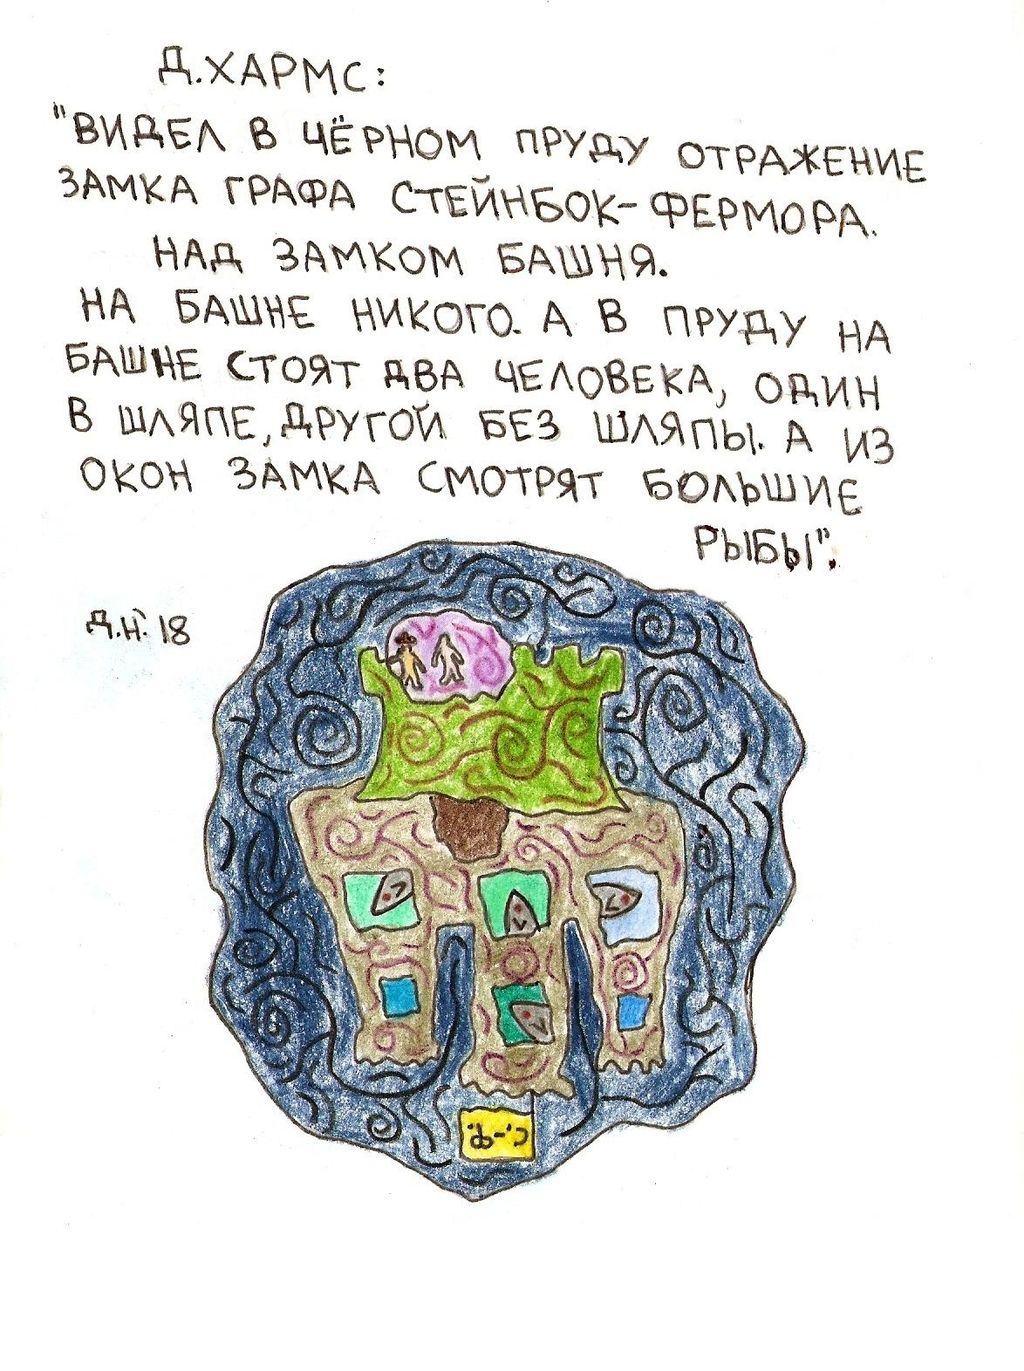 Д.ХАРМС:
"ВИДЕЛ В ЧЁРНОМ ПРУДУ ОТРАЖЕНИЕ
ЗАМКА ГРАФА СТЕЙНБОК-ФЕРМОРА.
НАД ЗАМКОМ БАШНЯ.
НА БАШНЕ НИКОГО. А В ПРУДУ НА
БАШНЕ СТОЯТ ДВА ЧЕЛОВЕКА, ОДИН
В ШЛЯПЕ, ДРУГОЙ БЕЗ ШЛЯПЫ. А ИЗ
ОКОН ЗАМКА СМОТРЯТ БОЛЬШИЕ
РЫБЫ".
Д.Н. 18